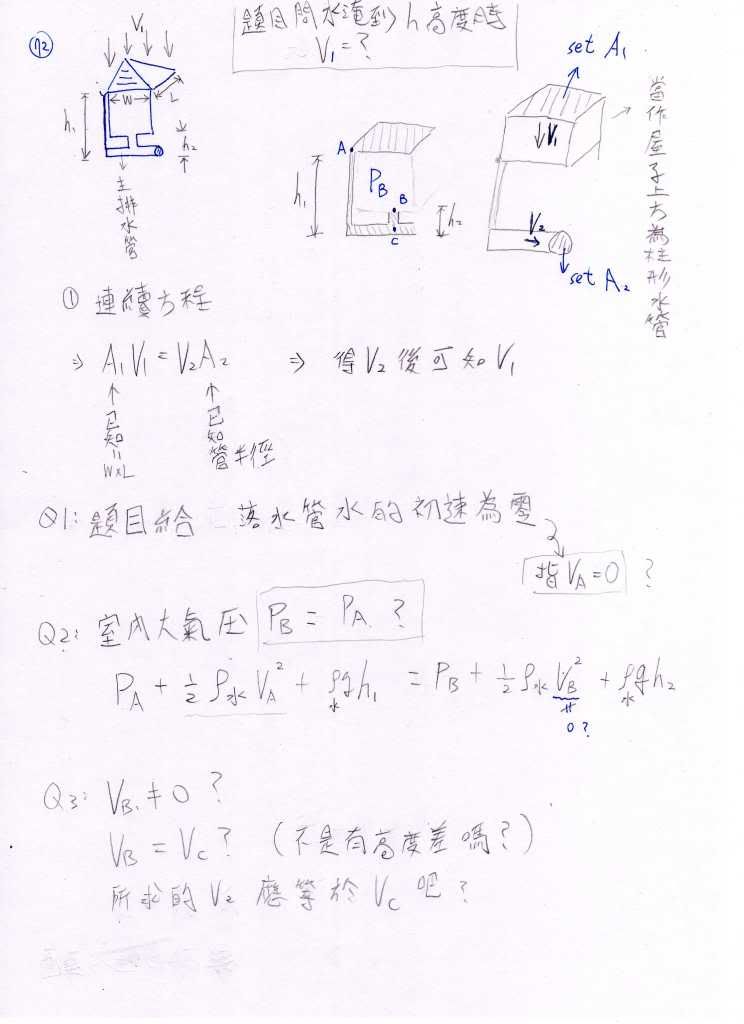 72
題目問水淹到 h 高度時
V₁ = ?
V₁
W
L
h₁
h₂
主排水管
A
h₁
P_B
B
C
h₂
set A₁
V₁
V₂
set A₂
當作屋子上方為柱形水管
① 連續方程
⇒ A₁V₁ = V₂A₂ ⇒ 得 V₂ 後可知 V₁
已知 = W×L
已知管半徑
Q1: 題目給 落水管水的初速為零
指 V_A = 0 ?
Q2: 室內大氣压 P_B = P_A ?
P_A + ½ρ水V_A² + ρ水gh₁ = P_B + ½ρ水V_B² + ρ水gh₂
0?
Q3: V_B ≠ 0 ?
V_B = V_C ? (不是有高度差嗎?)
所求的 V₂ 應等於 V_C 吧?